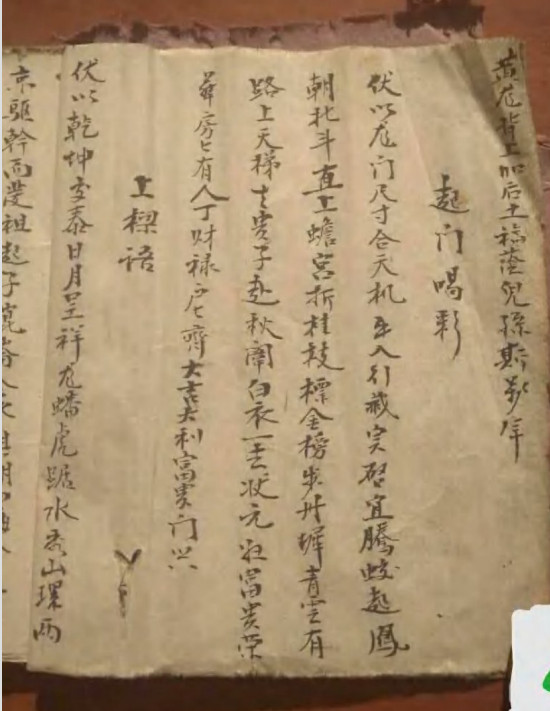 黄龙背上加后土福荫儿孙斯万年
起门喝彩
伏以龙门尺寸合天机出入行藏实启宜腾蛟起鳳
朝北斗直上蟾宫折桂枝標金榜步丹墀青雲有
路上天梯士贵子赴秋闱白衣一去状元归富贵荣
華房七有人丁财禄户七齊大吉大利富贵门兴
上樑语
伏以乾坤交泰日月呈祥龙蟠虎踞水秀山環两